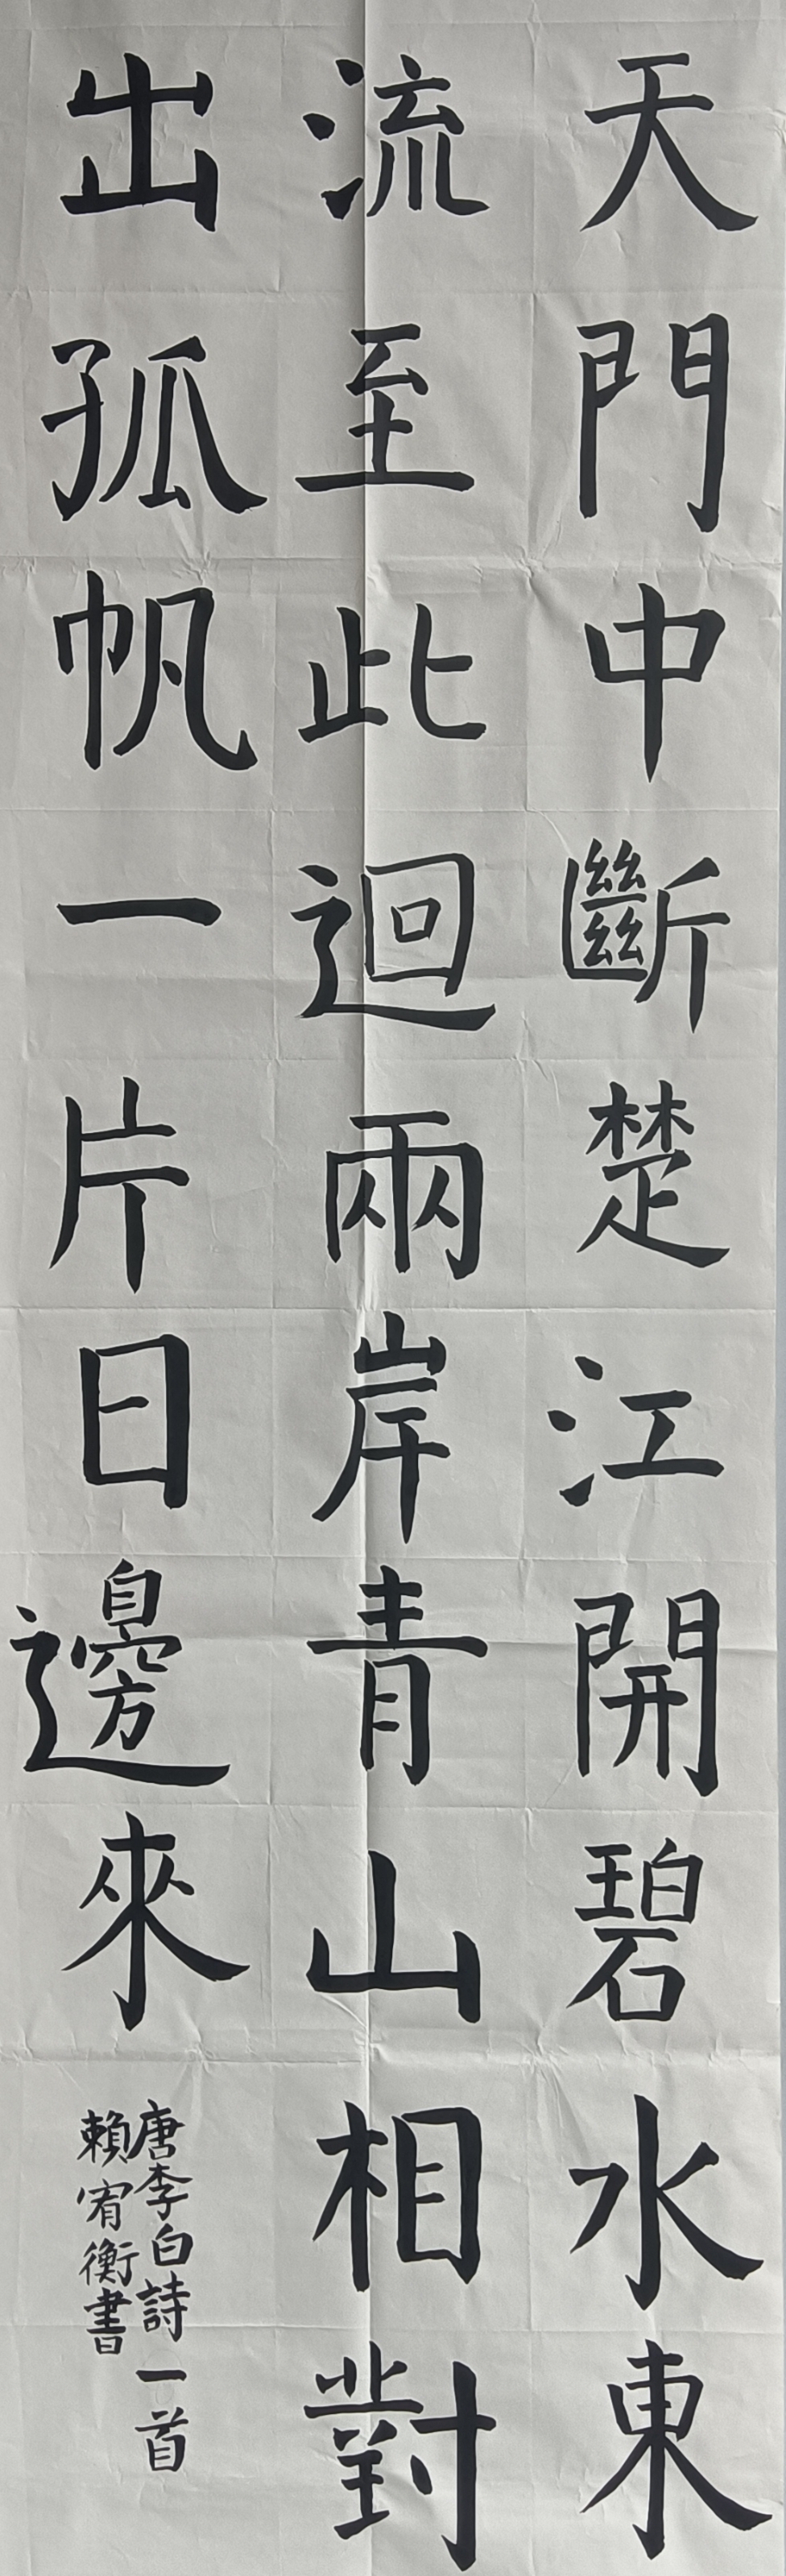 天門中斷楚江開碧水東
流至此迴兩岸青山相對
出孤帆一片日邊來
唐李白詩一首
賴宥衡書